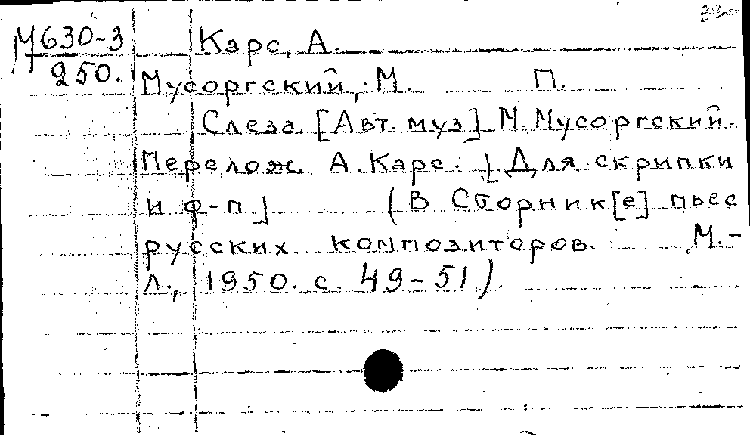 М630-3 Карс, А.
250. Мусоргский, М. П.
Слеза [Авт. муз] М. Мусоргский.
Перелож. А. Карс. [Для скрипки
и ф-п] (В Сборник[е] пьес
русских композиторов. М.-
Л., 1950. с. 49-51)